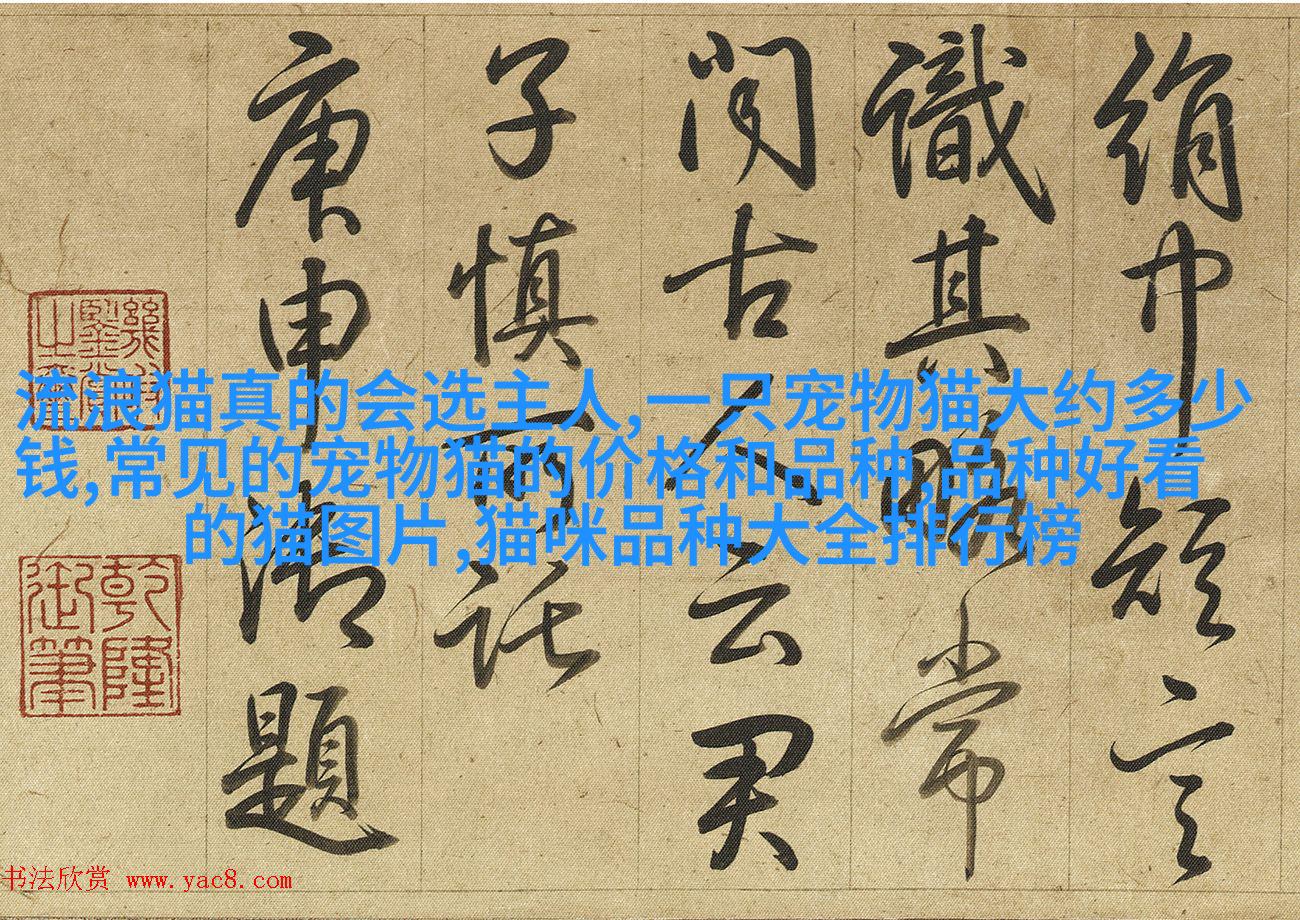 絹巾短言
識其略常
聞古人云君
子慎所託
庚申御題
乾隆
御筆
流浪猫真的会选主人,一只宠物猫大约多少
钱,常见的宠物猫的价格和品种,品种好看
的猫图片,猫咪品种大全排行榜
书法欣赏 www.yac8.com